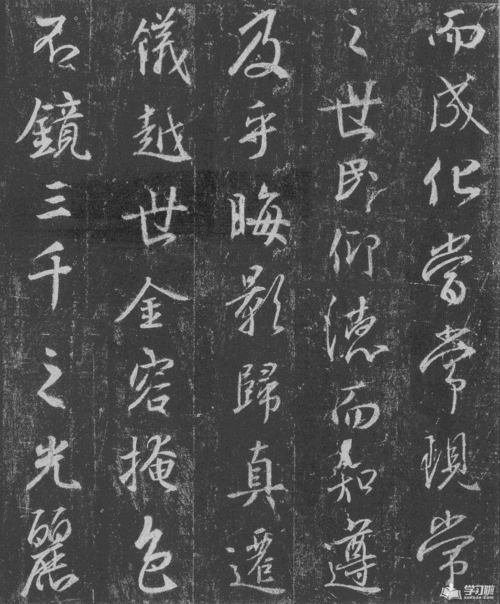 而成化當常現常
之世民仰德而知遵
及乎晦影歸真遷
儀越世金容掩色
不鏡三千之光麗
学习啦